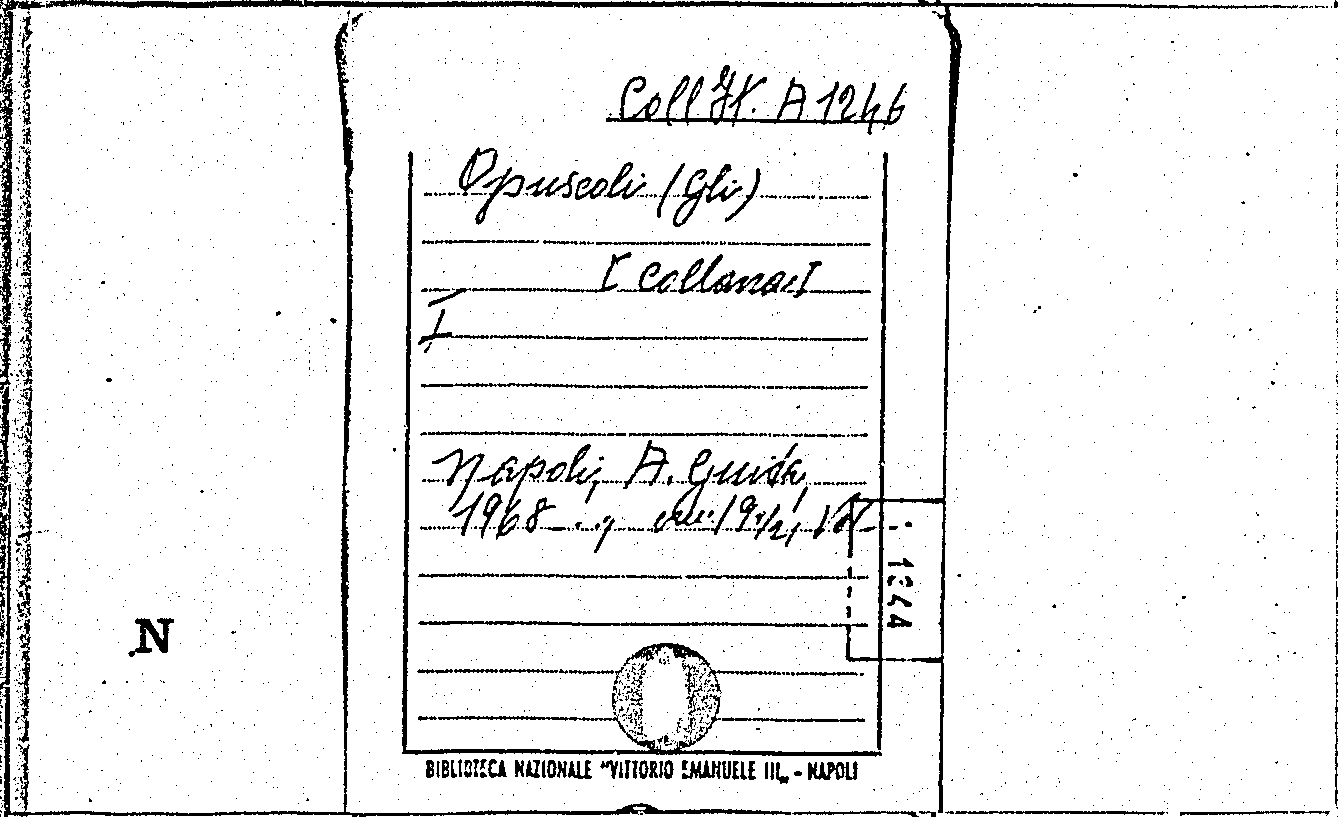 Coll It. A 1246
Opuscoli (Gli)
[Collana]
I
Napoli, A. Guida,
1968-..., cm. 19 1/2,
1344
N
BIBLIOTECA NAZIONALE "VITTORIO EMANUELE III" - NAPOLI